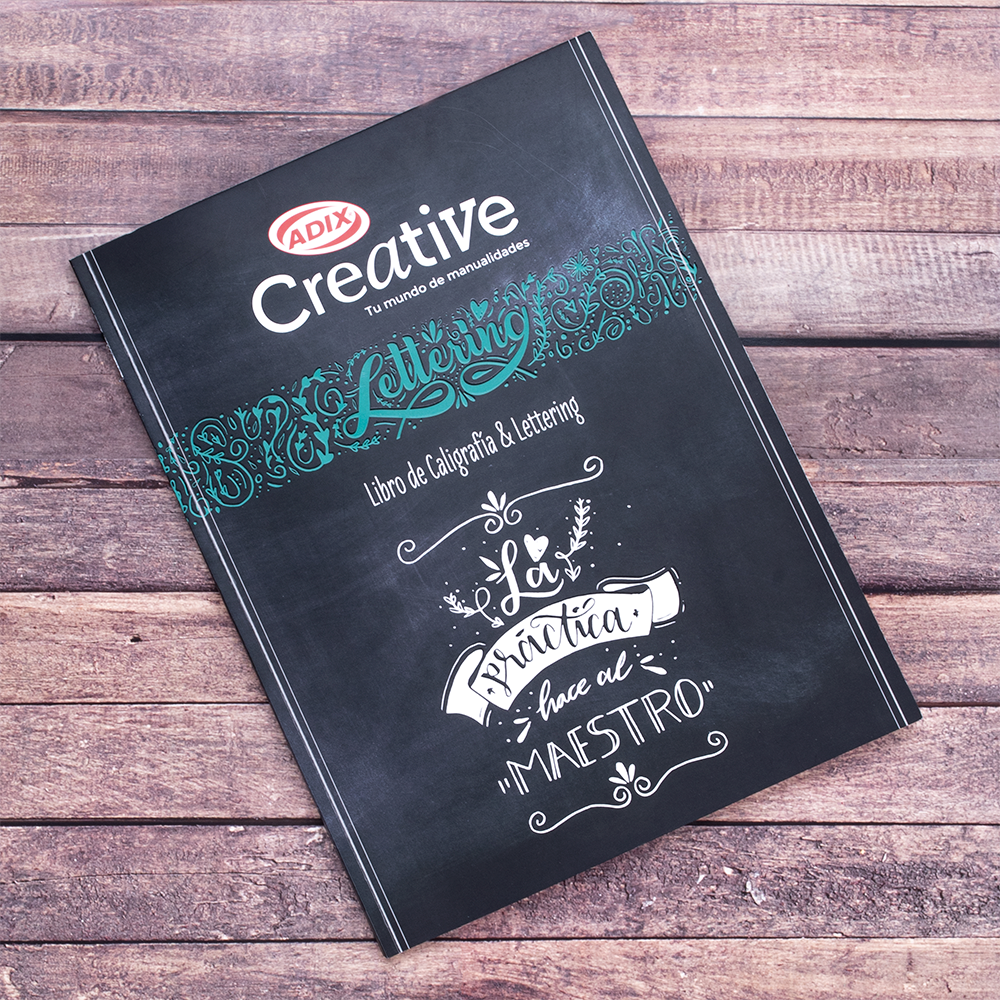 ADIX
Creative
Tu mundo de manualidades
Lettering
Libro de Caligrafía & Lettering
La
práctica
hace al
"MAESTRO"